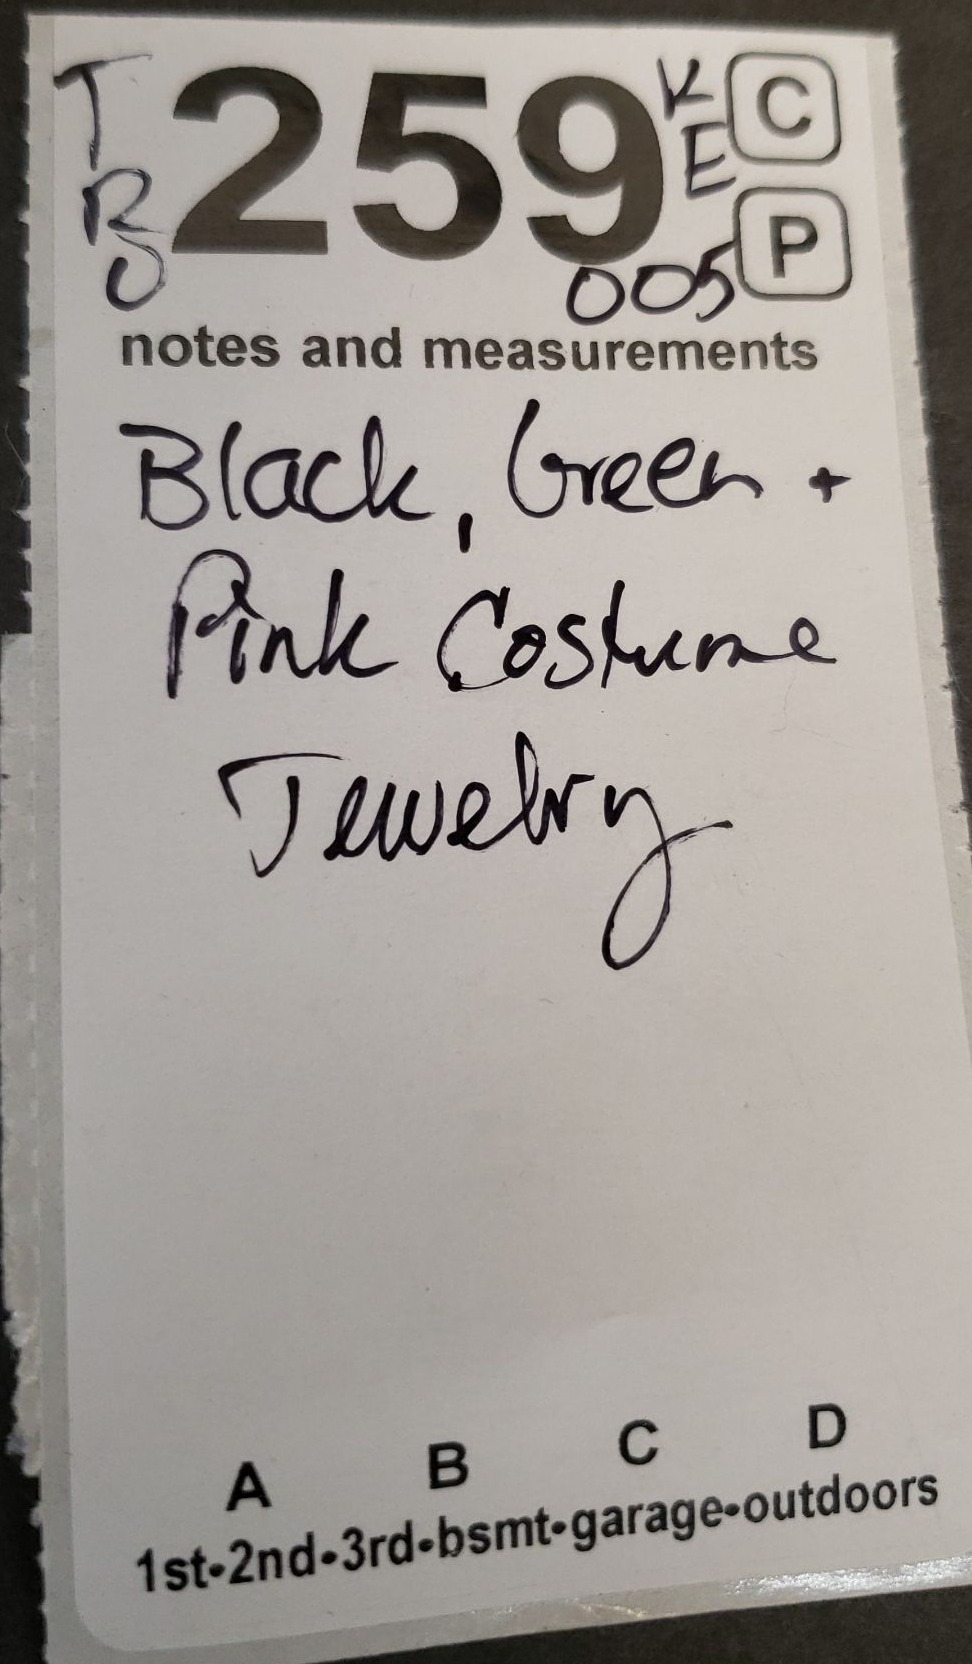 T 259 K C
R E P
O 005
notes and measurements
Black, Green +
Pink Costume
Jewelry
A B C D
1st•2nd•3rd•bsmt•garage•outdoors